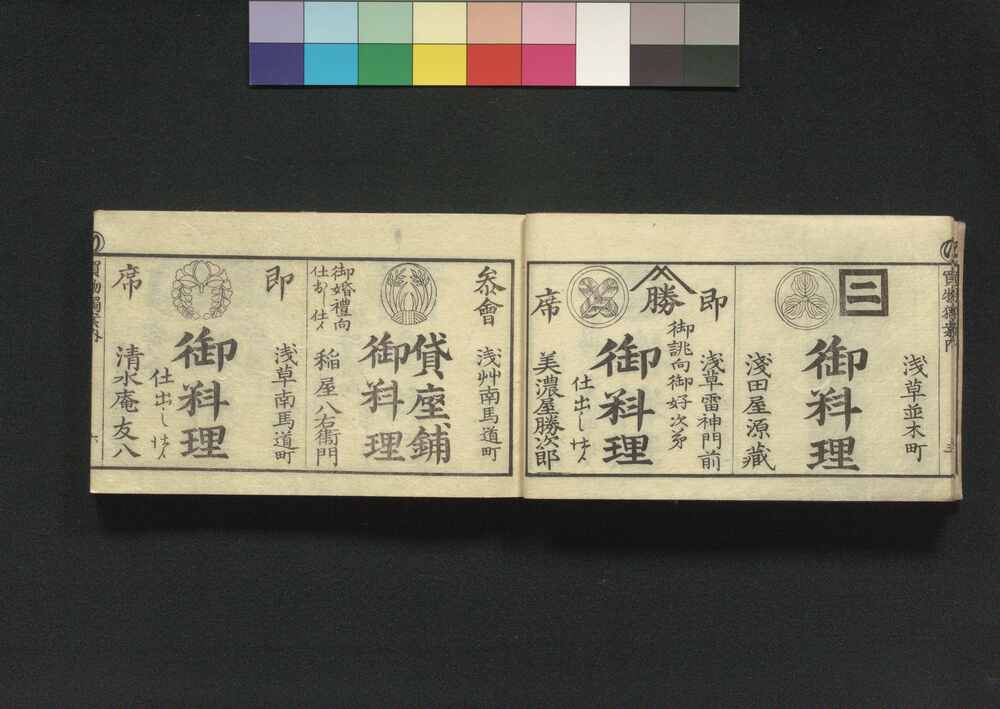 浅草並木町
二
御料理
淺田屋源藏
浅草雷神門前
即
席
勝
御誂向御好次第
御料理
仕出し仕候
美濃屋勝次郎
浅艸南馬道町
参會
貸座鋪
御料理
御婚禮向
仕出し仕候
稲屋八右衛門
浅草南馬道町
即
席
御料理
仕出し仕候
清水庵友八
六